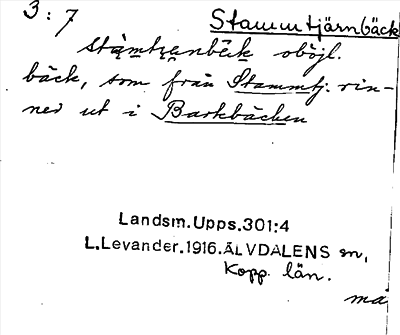 3:7
Stammtjärnbäck
stàmtjęnbęk oböjl.
bäck, som från Stammtj. rin-
ner ut i Barkbäcken
Landsm.Upps.301:4
L.Levander.1916.ÄLVDALENS sn,
Kopp. län.
må